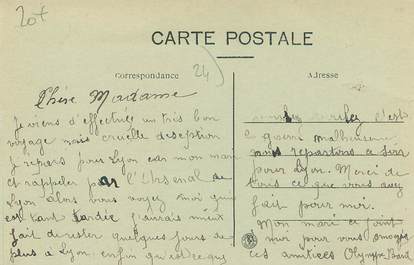 20f
CARTE POSTALE
Correspondance
24
Adresse
Chère Madame
Je viens d'effectuer un très bon
voyage mais cruelle deseption
Je repars pour Lyon car mon mari
et rappeler par l'Arsenal de
Lyon alors vous voyez moi qui
est tant tardée j'aurais mieux
fait de rester quelques jours de
plus à Lyon enfin qu'est ce que
c'est
la guerre malheureuse
nous repartons a six
pour Lyon. Merci de
tous ce que vous avez
fait pour moi.
Mon mari a joint
moi pour vous
ces amitiées Olympe